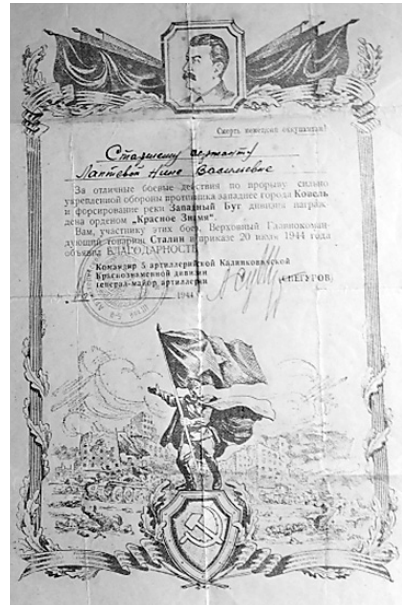 Смерть немецким оккупантам!
Старшему сержанту
Лаптевой Нине Васильевне
За отличные боевые действия по прорыву сильно
укрепленной обороны противника западнее города Ковель
и форсирование реки Западный Буг дивизия награж-
дена орденом „Красное Знамя“.
Вам, участнику этих боев, Верховный Главнокоман-
дующий товарищ Сталин в приказе 20 июля 1944 года
объявил БЛАГОДАРНОСТЬ.
Командир 5 артиллерийской Калинковичской
Краснознаменной дивизии
генерал-майор артиллерии (СНЕГУРОВ)
1944